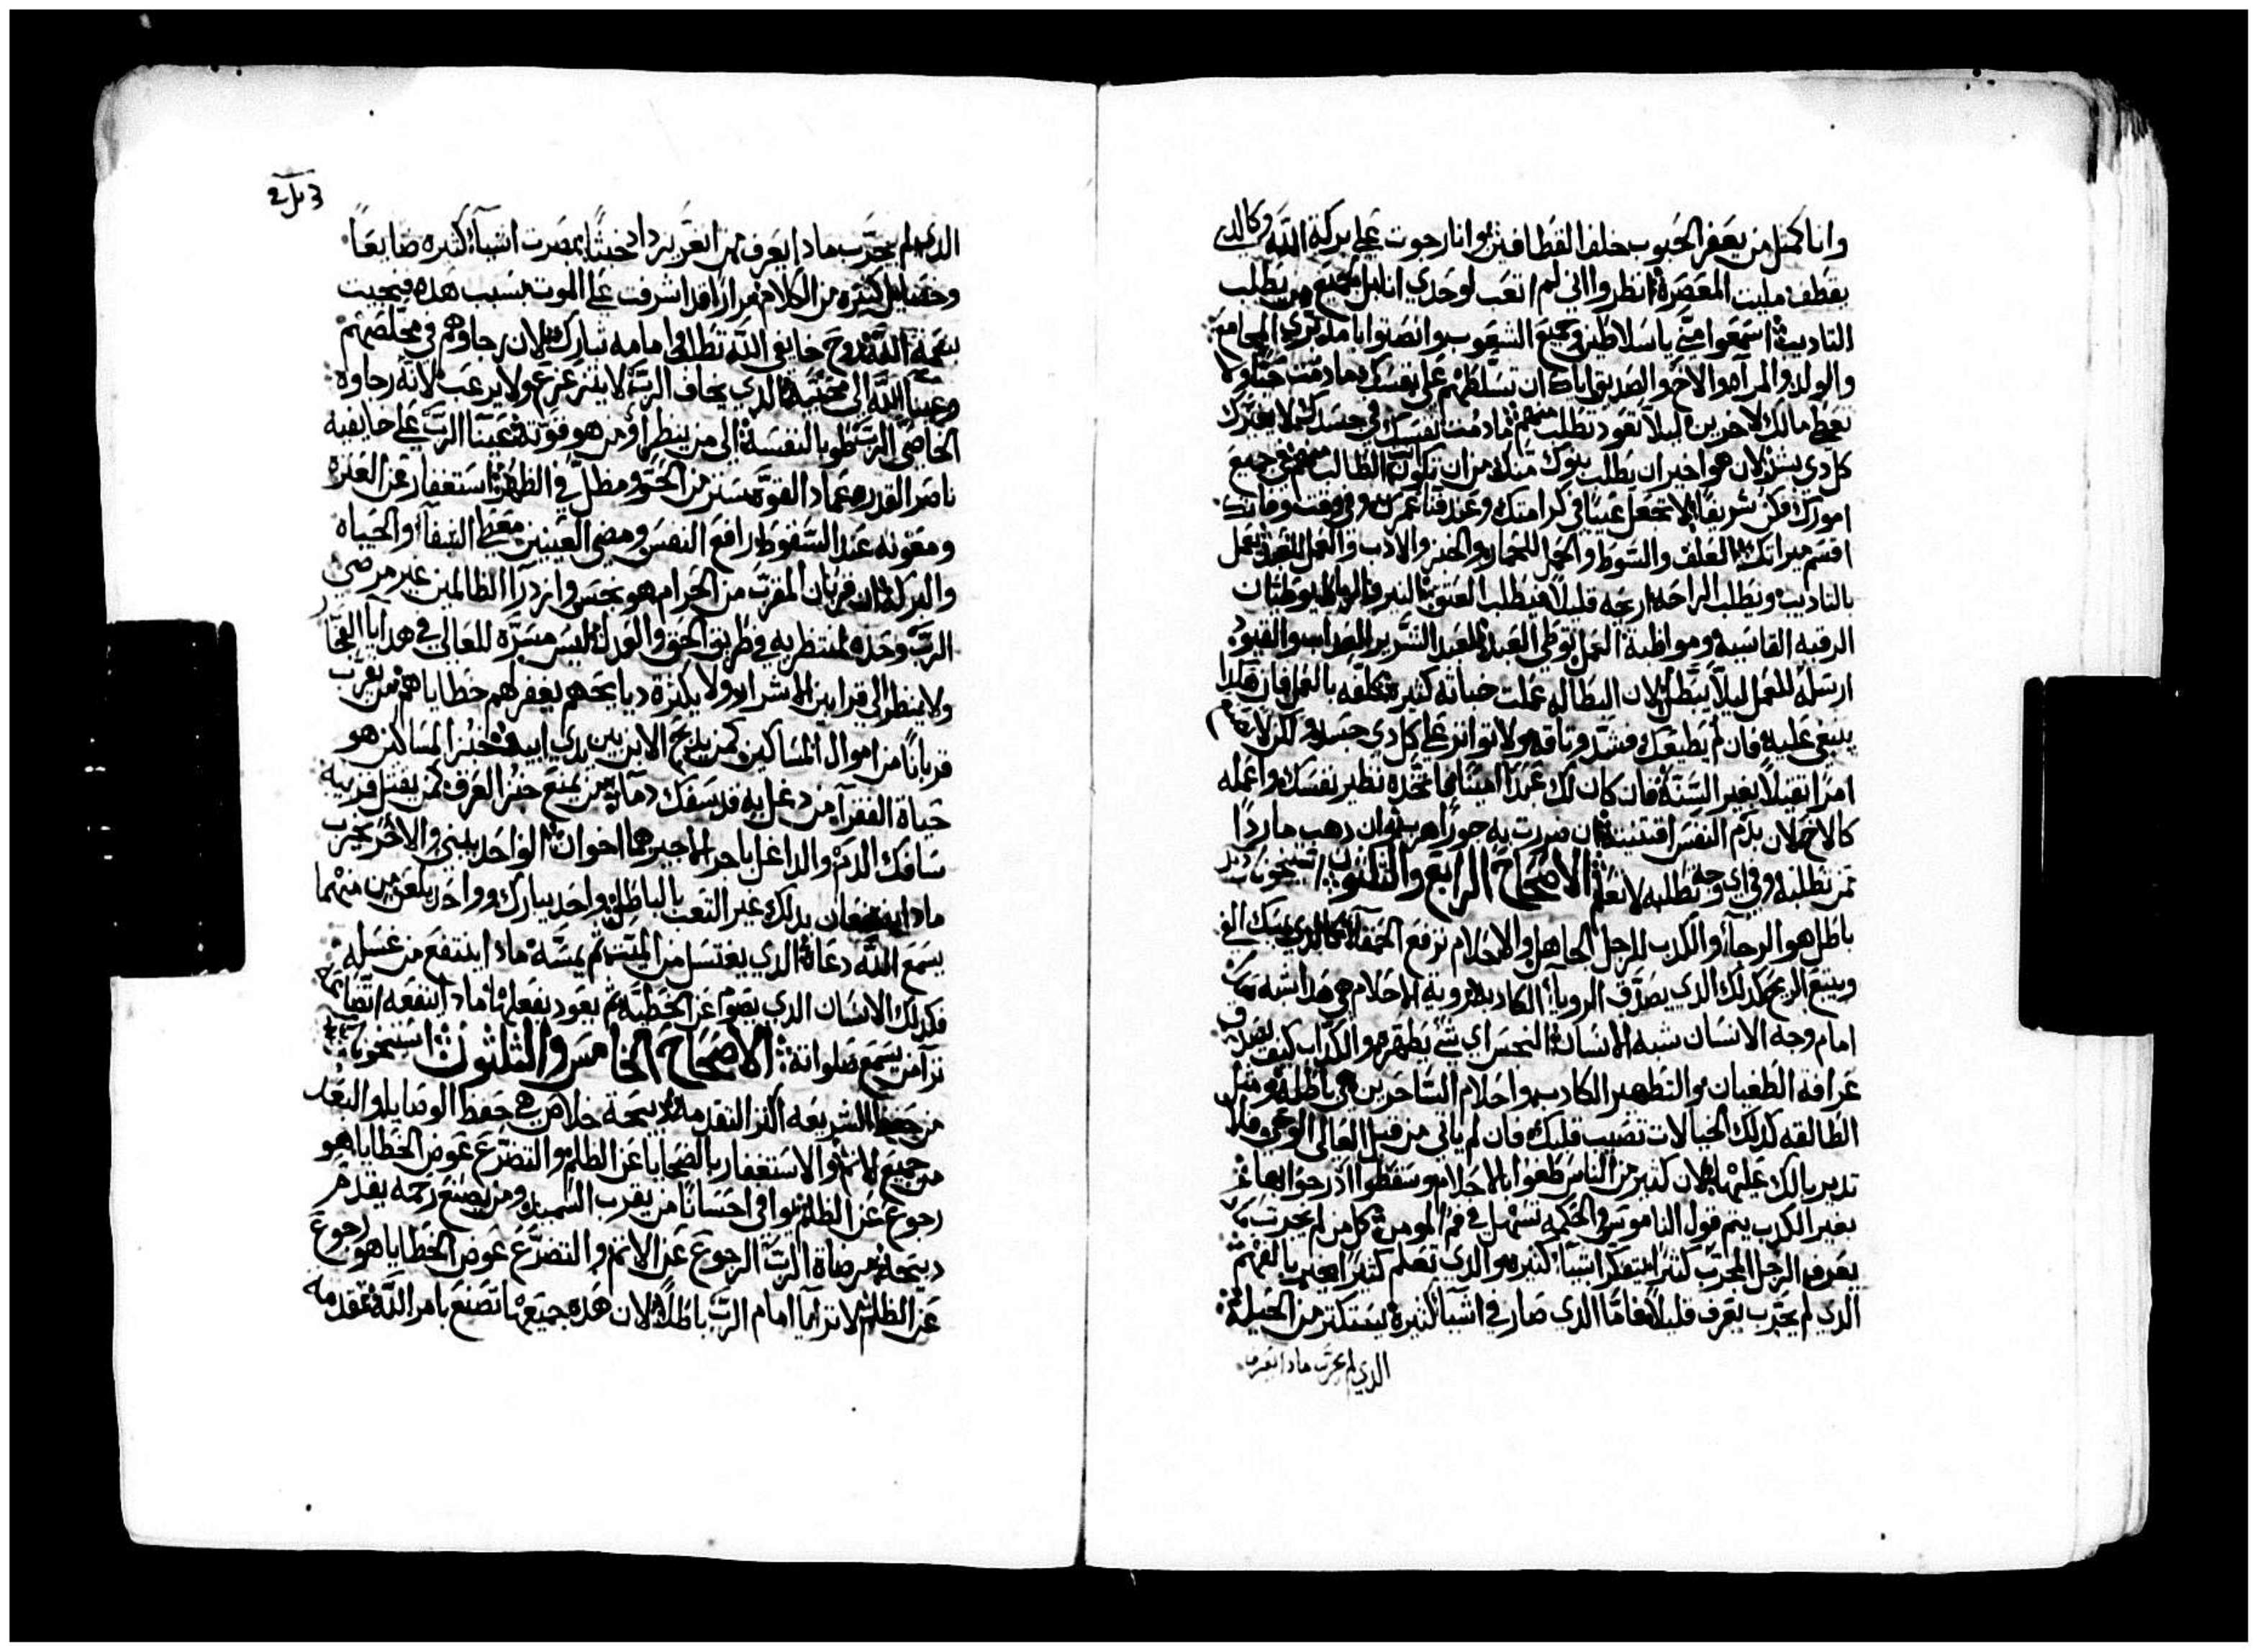 وانا كمثل من يعفر الحبوب خلف القطافين وانا رجوت على بركة الله وكالذي
يقطف مليت المعصرة انظروا اني لم اتعب لوحدي انا بل لجميع من يطلب
التاديب اسمعوا مني ياسلاطين وجميع الشعوب وانصتوا يا مدبري المجامع
والولد والمراه والاخ والصديق اياك ان تسلطهم على نفسك مادمت حيا ولا
تعطي مالك لاخرين ليلا تعود تطلب منهم مادمت نفسك في جسدك لا يغيرك
كل دي بشر لان هو اخير ان يطلب بنوك منك من ان تكون الطالب منهم في جميع
امورك فكن شريفا لا تجعل عيبا في كرامتك وعند فنا عمرك وفي وقت وفاتك
اقسم ميراتك العلف والسوط والحمل للحمار والخبز والادب والعمل للعبد يعمل
بالتاديب ويطلب الراحه اريحه قليلا فيطلب العتق النير والرباط يوطيان
الرقبه القاسية ومواظبة العمل توطي العبد للعبد الشرير العداب والقيود
ارسله للعمل ليلا يتبطل لان البطاله علمت خباثه كثيره كلفه بالعمل فان هكدا
ينبغي عليه فان لم يطيعك فشد وثاقه ولا تواتر على كل دي جسد لكن لا تصنع
امرا ثقيلا بغير السنة فان كان لك عبدا امينا فاتخده نظير نفسك واعمله
كالاخ لان بدم النفس اقتنيته ان ضررت به جورا هرب وان دهب ماردا
ممن تطلبه وفي اي وجه تطلبه لا تعلم الاصحاح الرابع والثلثون
باطل هو الرجا والكدب للرجل الجاهل والاحلام ترفع الجهلا كالدي يمسك الفي
ويتبع الريح كدلك الدي يصدق الرويا الكادبه روية الاحلام هي هدا شبه
امام وجه الانسان شبه الانسان النجس اي شي يطهره والكداب كيف يصدق
عرافة الطغيان والتطهير الكادب واحلام الساحرين هي باطله ومثل
الطالقه كدلك الخيالات تصيب قلبك فان لم ياتي من قبل العالي الوحي فلا
تدير بالك عليها لان كثير من الناس طغوا بالاحلام وسقطوا اد رجوا بها
بغير الكدب يتم قول الناموس والحكمه تسهل في فم المومن كل من لم يجرب
يعرف الرجل المجرب كثيرا يتفكر اشيا كثيره والدي تعلم كثيرا يخبر بالفهم
الدي لم يجرب يعرف قليلا فاما الدي صار في اشيا كثيرة يستكثر من الحيله
الدي لم يجرب مادا يعرف
الدي لم يجرب مادا يعرف من انغر يزداد خبثا ابصرت اشيا كثيره ضايعا
وخصايل كثيره من الكلام مرارا قد اشرفت على الموت بسبب هده فنجيت
بنعمة الله روح خايفي الله تطلب وامامه تبارك لان رجاوهم في مخلصهم
وعينا الله الى محبيه الدي يخاف الرب لا يتزعزع ولا يرعب لانه رجاوه
الخاص الرب طوبا لنفسه الى من ينظر ومن هو قوته عينا الرب على خايفيه
ناصر القدره عماد القوة ستر من الحر ومظل في الظهر استغفار عن العثرة
ومعونه عند السقوط رافع النفس ومضي العينين معطي الشفا والحياه
والبركه ان قربان المقرب من الحرام هو نجس وازدرا الظالمين غير مرضي
الرب وحده لمنتظريه في طريق الحق والعدل ليس مسرة للعالي في هدايا الفجار
ولا ينظر الى قرابين الاشرار ولا بكثرة دبايحهم يغفر لهم خطاياهم من يقرب
قربانا من اموال المساكين كمن يدبح الابن بين يدي ابيه خبز المساكين هو
حياة الفقرا من دغل به فد سفك دما من يمنع خبز العرق كمن يقتل قريبه
سافك الدم والداغل باجر الاجير هما اخوان الواحد يبني والاخر يخرب
مادا ينتفعان بدلك غير التعب بالباطل واحد يبارك وواحد يلعن من منهما
يسمع الله دعاه الدي يغتسل من الميت ثم يمسه مادا ينتفع من غسله
فكدلك الانسان الدي يصوم عن الخطيه ثم يعود يفعلها مادا ينفعه اتضاعه
ترا من يسمع صلواته الاصحاح الخامس والثلثون
من حفظ الشريعه اكثر التقدمه دبيحة خلاص هي حفظ الوصايا والبعد
من جميع الاثم والاستغفار بالضحايا عن الظلم والتضرع عوض الخطايا هو
رجوع عن الظلم يوافي احسانا من يقرب السميد ومن يصنع رحمه يقدم
دبيحة مرضاة الرب الرجوع عن الاثم والتضرع عوض الخطايا هو رجوع
عن الظلم لا ترايا امام الرب باطلا لان هده جميعها تصنع بامر الله تقدمه